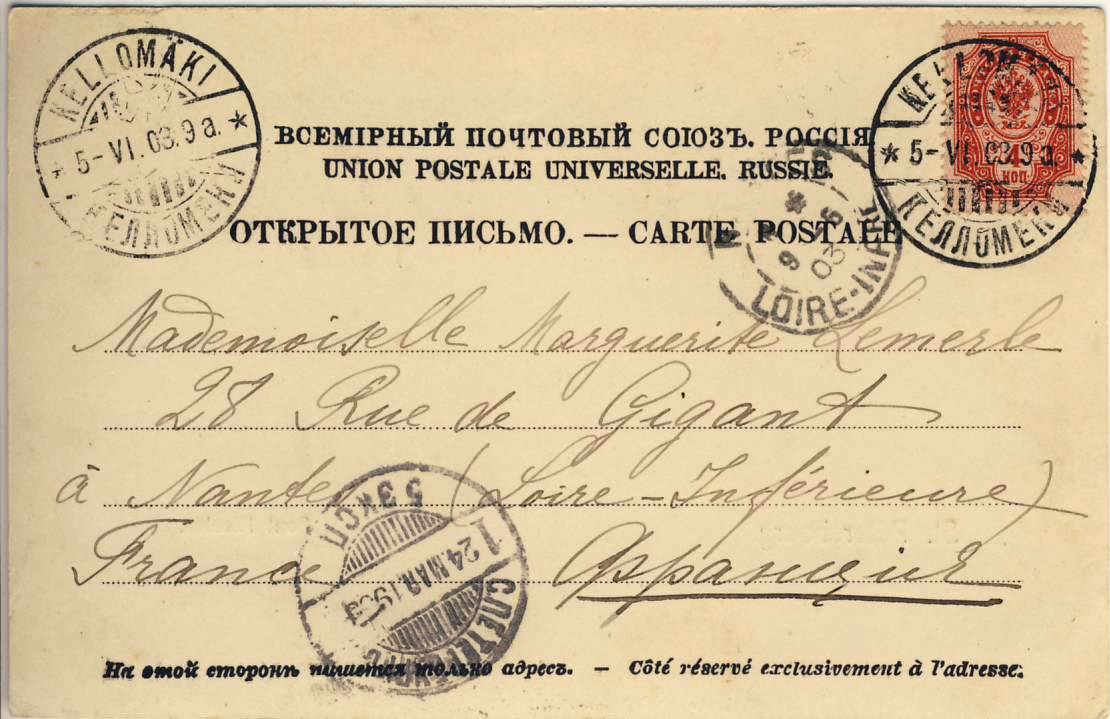 KELLOMÄKI
5-VI.03.9a.
КЕЛЛОМЕКИ
4
КОП
5-VI.03.9a.
КЕЛЛОМЕКИ
ВСЕМІРНЫЙ ПОЧТОВЫЙ СОЮЗЪ. РОССІЯ
UNION POSTALE UNIVERSELLE. RUSSIE.
ОТКРЫТОЕ ПИСЬМО. — CARTE POSTALE
9 6
03
LOIRE-INFRE
Mademoiselle Marguerite Lemerle
28 Rue de Gigant
à Nantes (Loire-Inférieure)
France Франція
5 ЭКСП
1
24 МАЯ 1903
С.ПЕТЕРБУРГЪ
На этой сторонѣ пишется только адресъ. — Côté réservé exclusivement à l'adresse.